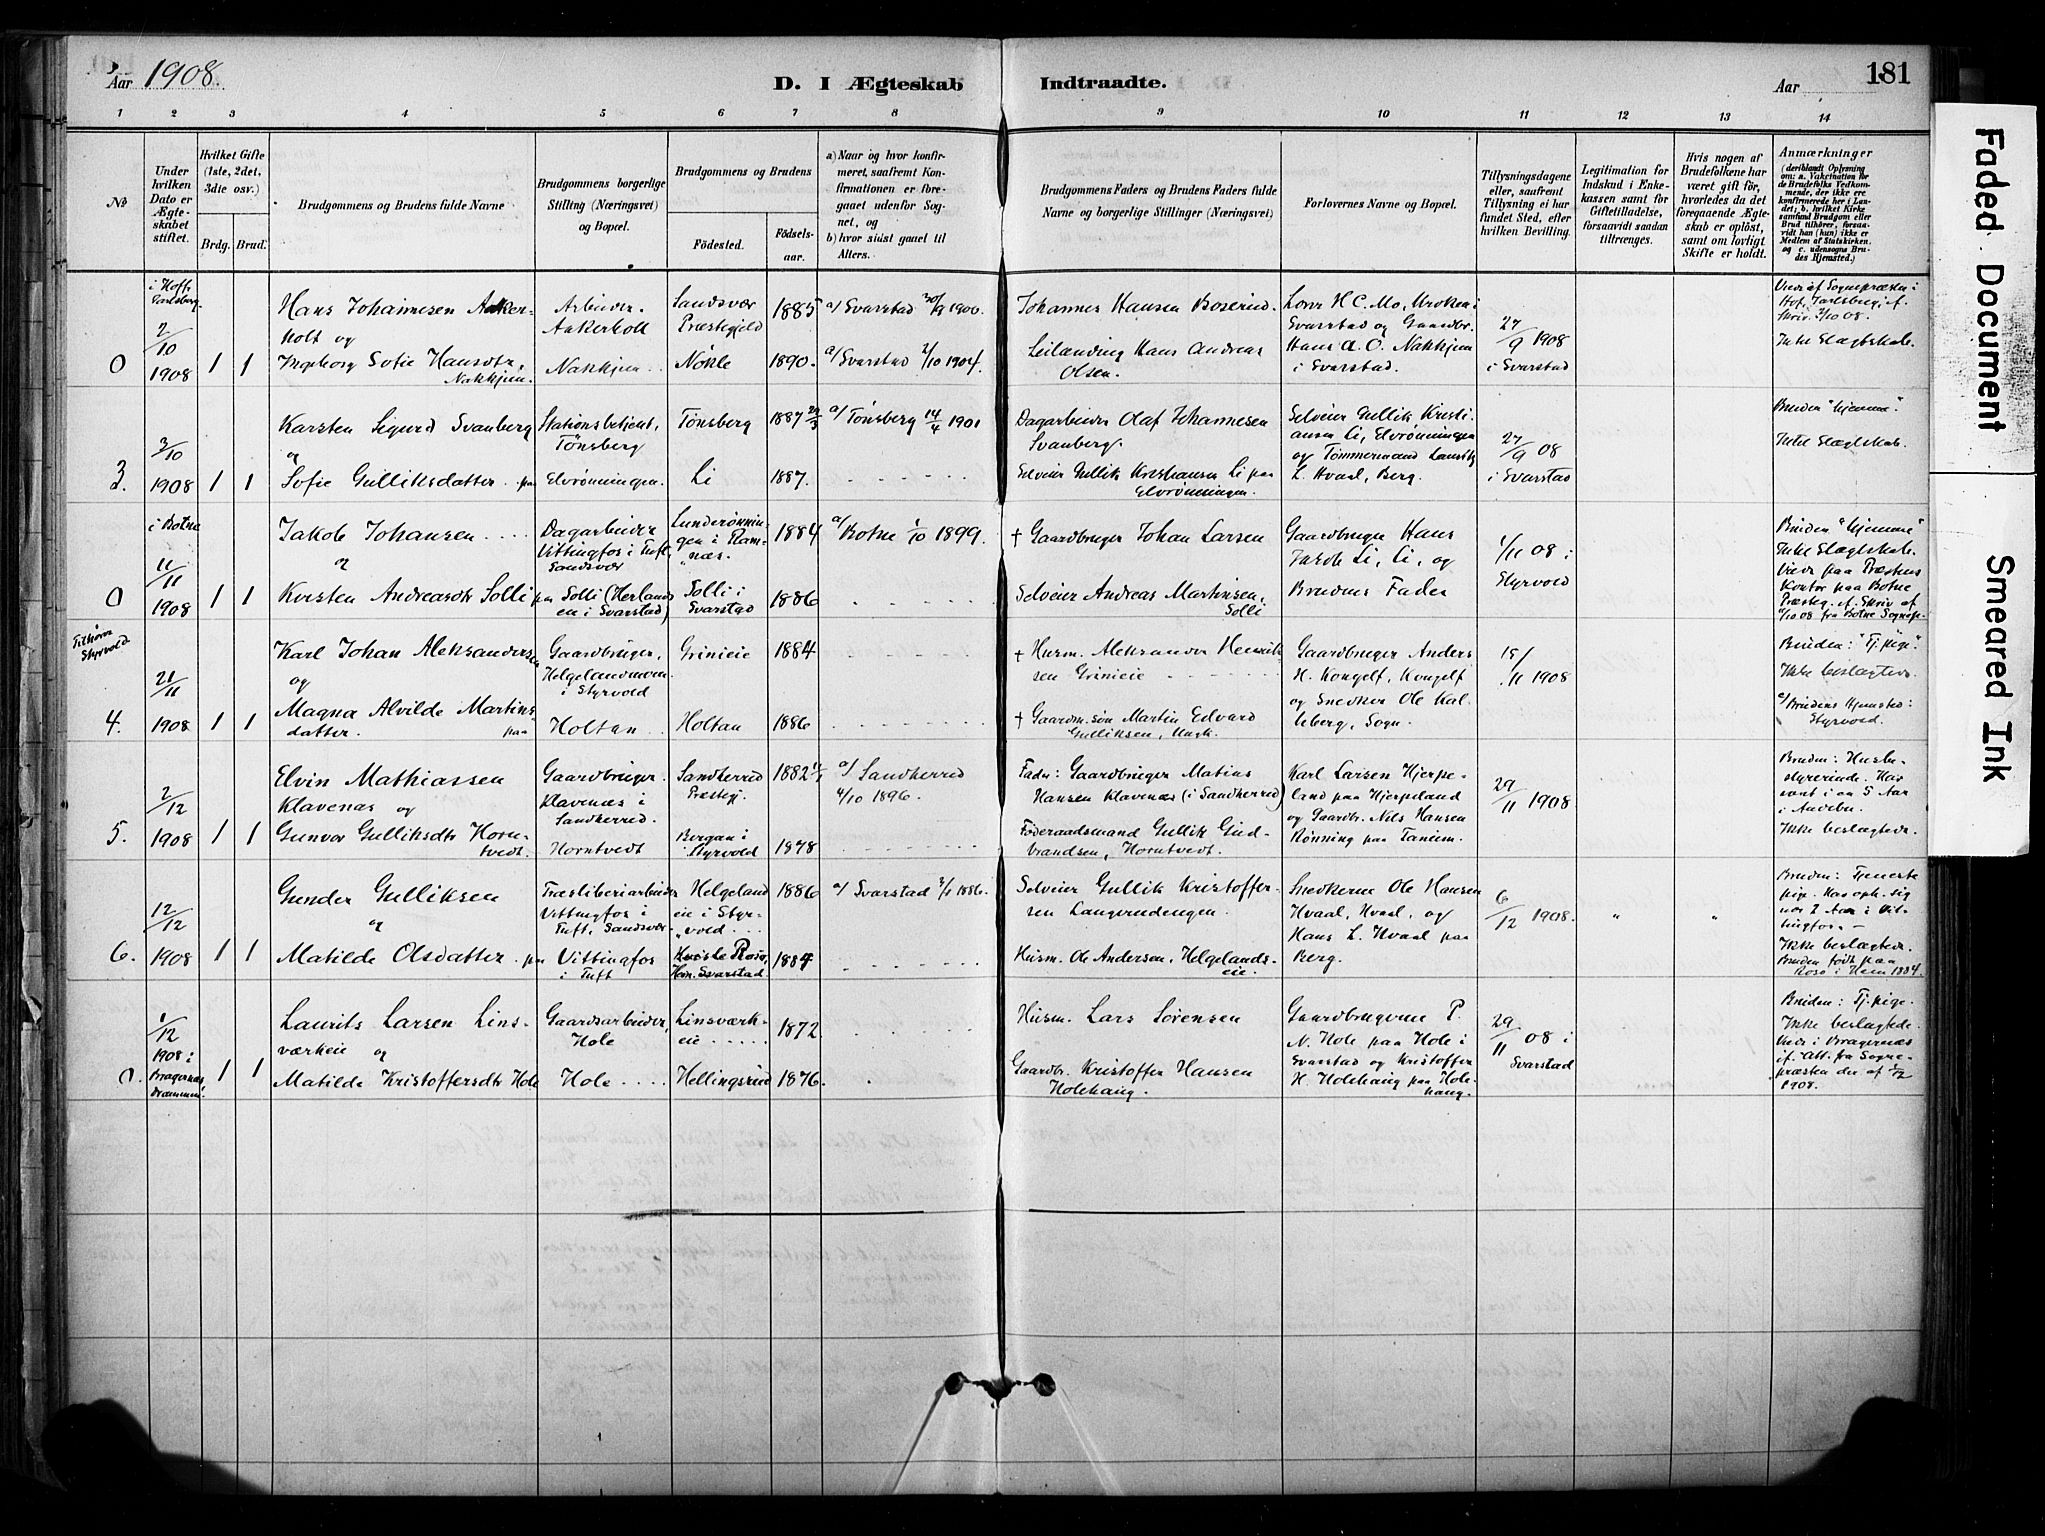 Aar 1908.
D. I Ægteskab Indtraadte.
Aar
181
1 2 3 4 5 6 7 8 9 10 11 12 13 14
No
Under hvilken Dato er Ægteskabet stiftet.
Hvilket Gifte (1ste, 2det, 3die osv.)
Brdg. Brud.
Brudgommens og Brudens fulde Navne
Brudgommens borgerlige Stilling (Næringsvei) og Bopæl.
Brudgommens og Brudens
Fødested.
Fødselsaar.
a) Naar og hvor konfirmeret, saafremt Konfirmationen er foregaaet udenfor Sognet, og
b) hvor sidst gaaet til Alters.
Brudgommens Faders og Brudens Faders fulde Navne og borgerlige Stillinger (Næringsvei)
Forlovernes Navne og Bopæl.
Tillysningsdagene eller, saafremt Tillysning ei har fundet Sted, efter hvilken Bevilling.
Legitimation for Indskud i Enkekassen samt for Giftetilladelse, forsaavidt saadan tiltrenges.
Hvis nogen af Brudefolkene har været gift før, hvorledes da det foregaaende Ægteskab er opløst, samt om lovligt Skifte er holdt.
Anmærkninger
(deriblandt Oplysning om: a. Vakcination for de Brudefolks Vedkommende, der ikke ere konfirmerede her i Landet; b. hvilket Kirkesamfund Brudgom eller Brud tilhører, forsaavidt han (hun) ikke er Medlem af Statskirken, og c. udensogns Brudes Hjemsted.)
0 2/10 1908 1 1
Hans Johannesen Aakerholt og
Ingeborg Sofie Hansdtr. Nakkjem.
Arbeider. Aakerholt
Nakkjem
Sandsvær Præstegjeld
Nøkle
1885
1890.
a/ Svarstad 30/9 1900.
a/ Svarstad 2/10 1904.
Johannes Hansen Boserud.
Leilænding Hans Andreas Olsen.
Svarstad og Gaardbr. Hans A. O. Nakkjem i Svarstad.
27/9 1908 i Svarstad
Ikke Slægtskab.
3. 3/10 1908 1 1
Karsten Sigurd Svanberg
og
Sofie Gulliksdatter paa
Stationsbetjent, Tønsberg
Elvrønningen.
Tønsberg
Li
1887
1887.
a/ Tønsberg 14/4 1901
Dagarbeider Olaf Johannesen Svanberg.
Selveier Gullik Kristiansen Li paa Elvrønningen.
Selveier Gullik Kristiansen Li, Elvrønningen og Tømmermand Lauritz L. Hvaal, Berg.
27/9 08 i Svarstad
Bruden "hjemme".
Ikke Slægtskab.
0 i Botne 11/11 1908 1 1
Jakob Johansen
og
Kirsten Andreasdtr Solli
Dagarbeider Vittingfos i Tuft, Sandsvær
paa Solli (Herlandeie i Svarstad)
Lunderønningen i Ramnæs.
Solli i Svarstad
1884
1886
a/ Botne 1/10 1899.
† Gaardbruger Johan Larsen
Selveier Andreas Martinsen, Solli
Gaardbruger Hans Jakob Li, Li, og Brudens Fader
1/11 08 i Styrvold
Bruden "hjemme"
Ikke Slægtskab.
Viede paa Præstens Kontor paa Botne
Tilhører Styrvold
4. 21/11 1908 1 1
Karl Johan Aleksandersen
og
Magna Alvilde Martinsdatter. paa
Gaardbruger, Helgelandmoen i Styrvold
Holtan
Grinieie
Holtan
1884
1886
† Husm. Aleksander Henriksen Grinieie
† Gaardm.søn Martin Edvard Gulliksen,
Gaardbruger Anders H. Kongelf, Kongelf og Snedker Ole Kalleberg, Sogn.
15/11 1908
Bruden: "Tj. pige".
Ikke beslægtede.
a/ Brudens Hjemsted: Styrvold.
5. 2/12 1908 1 1
Elvin Mathiassen Klavenæs og
Gunvor Gulliksdtr Horntvedt.
Gaardbruger. Klavenæs i Sandherred.
Horntvedt
Sandherred Præstegj.
Bergan i Styrvold
1882
1878
a/ Sandherred 4/10 1896.
Fader: Gaardbruger Matias Hansen Klavenæs (i Sandherred)
Føderaadsmand Gullik Gudbrandsen, Horntvedt.
Karl Larsen Hjerpeland paa Hjerpeland og Gaardbr. Nils Hansen Rønning paa Taneim.
29/11 1908
Bruden: Husbestyrerinde. Har været i ca 5 Aar i Andebu.
Ikke beslægtede.
6. 12/12 1908 1 1
Gunder Gulliksen
og
Matilde Olsdatter. paa
Træsliberiarbeider Vittingfos i Tuft, Sandsvær
Vittingfos i Tuft
Helgelandeie i Styrvold
Hem. Svarstad
1886
1884
a/ Svarstad
Selveier Gullik Kristoffersen Langerudengen.
Husm. Ole Andersen, Helgelandseie.
Snedkerne Ole Hansen Hvaal, Hvaal, og Hans L. Hvaal paa Berg.
6/12 1908.
" "
Bruden: Tjenestepige. Har oph. sig nær 2 Aar i Vittingfos. —
Ikke beslægtede.
Bruden født paa Rosø i Hem 1884.
0. 1/12 1908 i Bragernæs, Drammen. 1 1
Laurits Larsen Linsværkeie og
Matilde Kristoffersdtr Hole
Gaardsarbeider, Hole
Hole
Linsværkeie
Hellingsrud
1872
1876.
Husm. Lars Sørensen
Gaardbr. Kristoffer Hansen Holehaug.
Gaardbrugerne P. N. Hole paa Hole i Svarstad og Kristoffer H. Holehaug paa Holehaug.
29/11 08 i Svarstad
Bruden: Tj. pige.
Ikke beslægtede.
Viede i Bragernæs if. Att. fra Sognepræsten der af 1/12 1908.
Faded Document
Smeared Ink